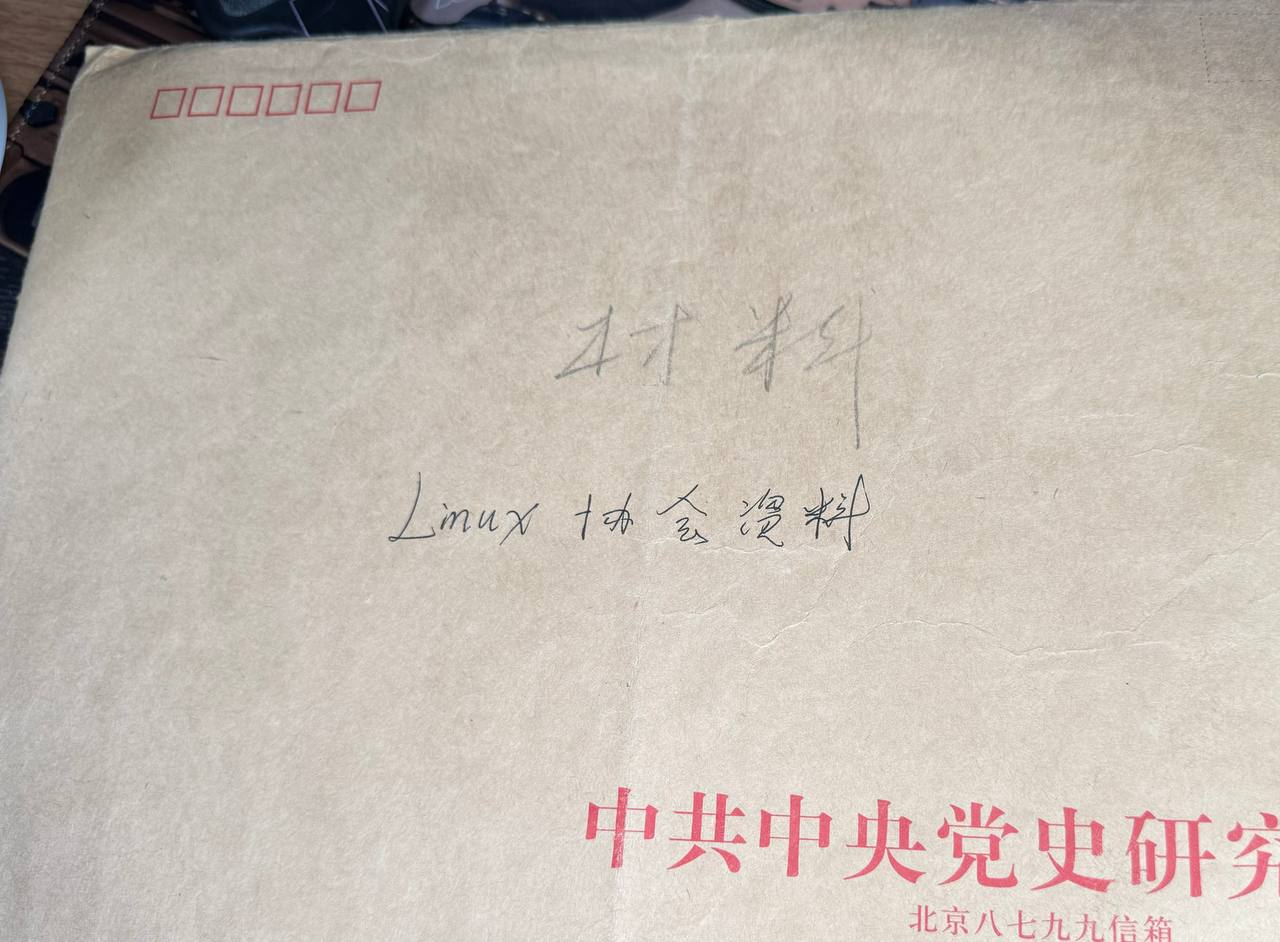 材料
Linux 协会资料
中共中央党史研究
北京八七九九信箱